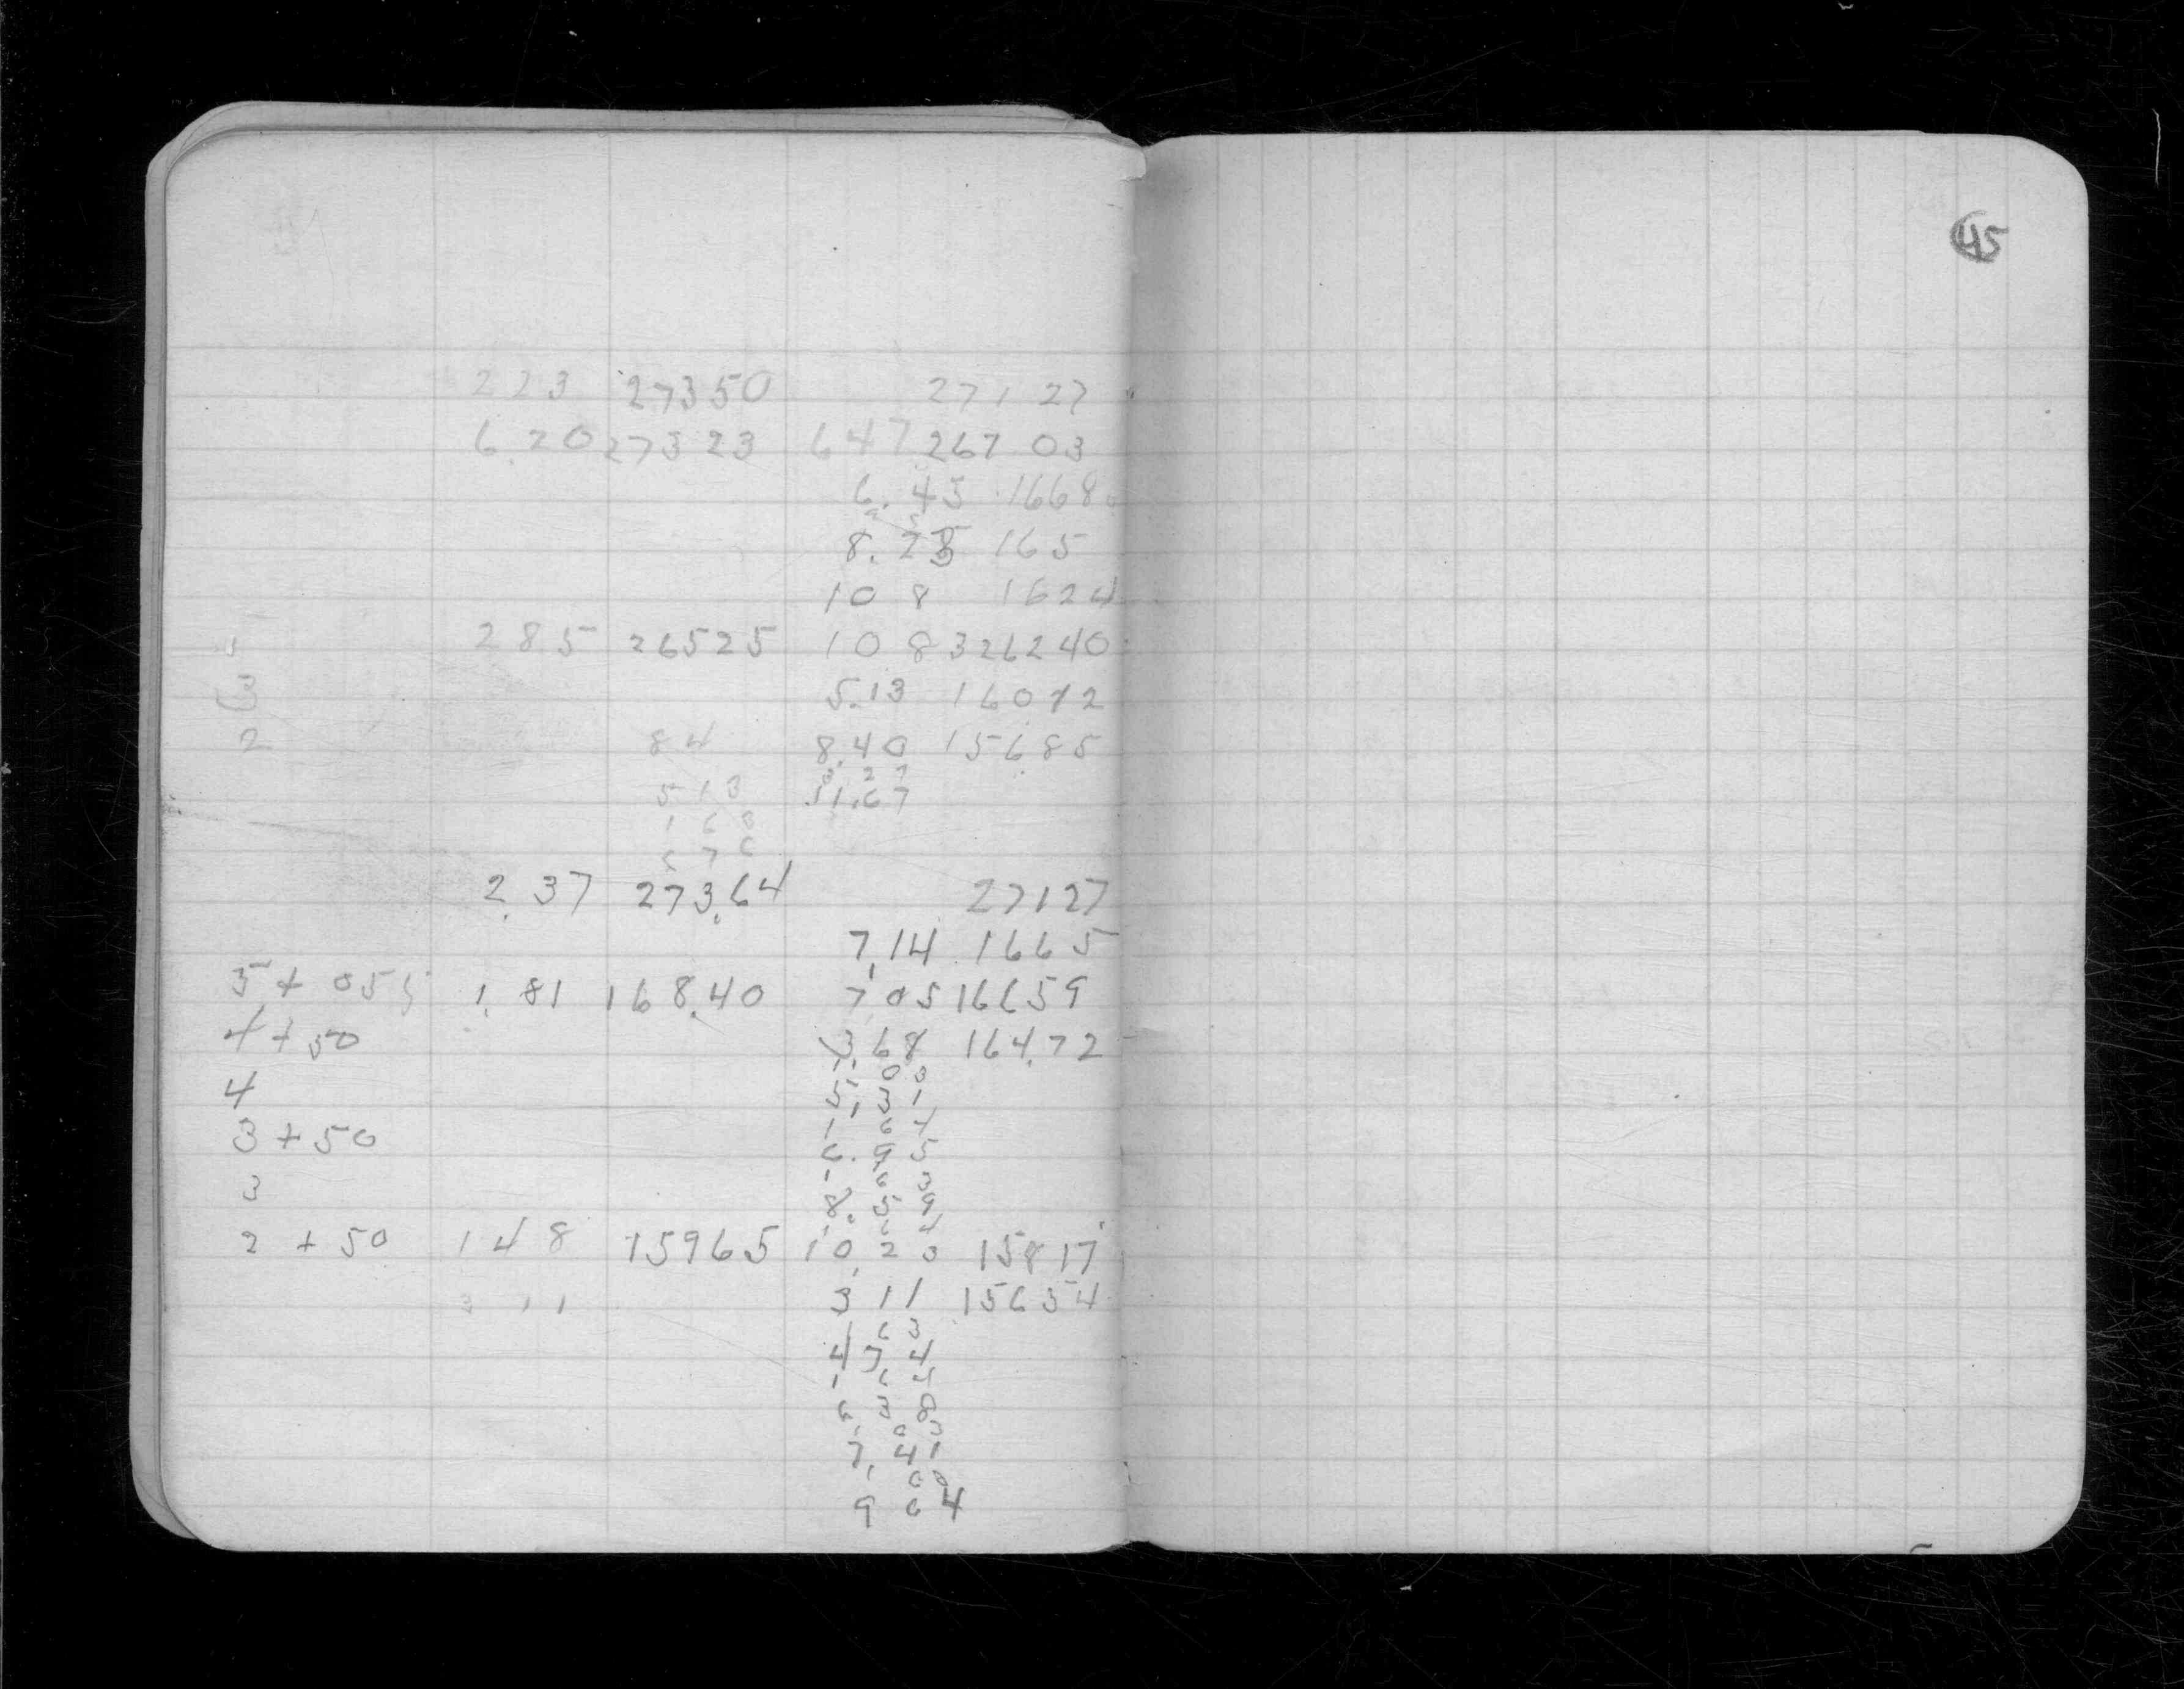 45
223 27350 27127
6.20 27323 647 26703
6.45 1668
8. 165
10 8 1624
285 26525 10 83 26240
3 5.13 16012
2 84 8.40 15685
3 27
513 11.67
168
676
2.37 273.64 27127
7,14 1665
5+055 1.81 168.40 705 16659
4+50 3.68 164.72
4 5.31
1 64
3+50 6.95
1 63
3 8.59
2+50 148 15965 10.20 15817
3 11 3 11 15654
1 63
4 7 4
1 6 4
6 38
1 03
7,41
9 6 4